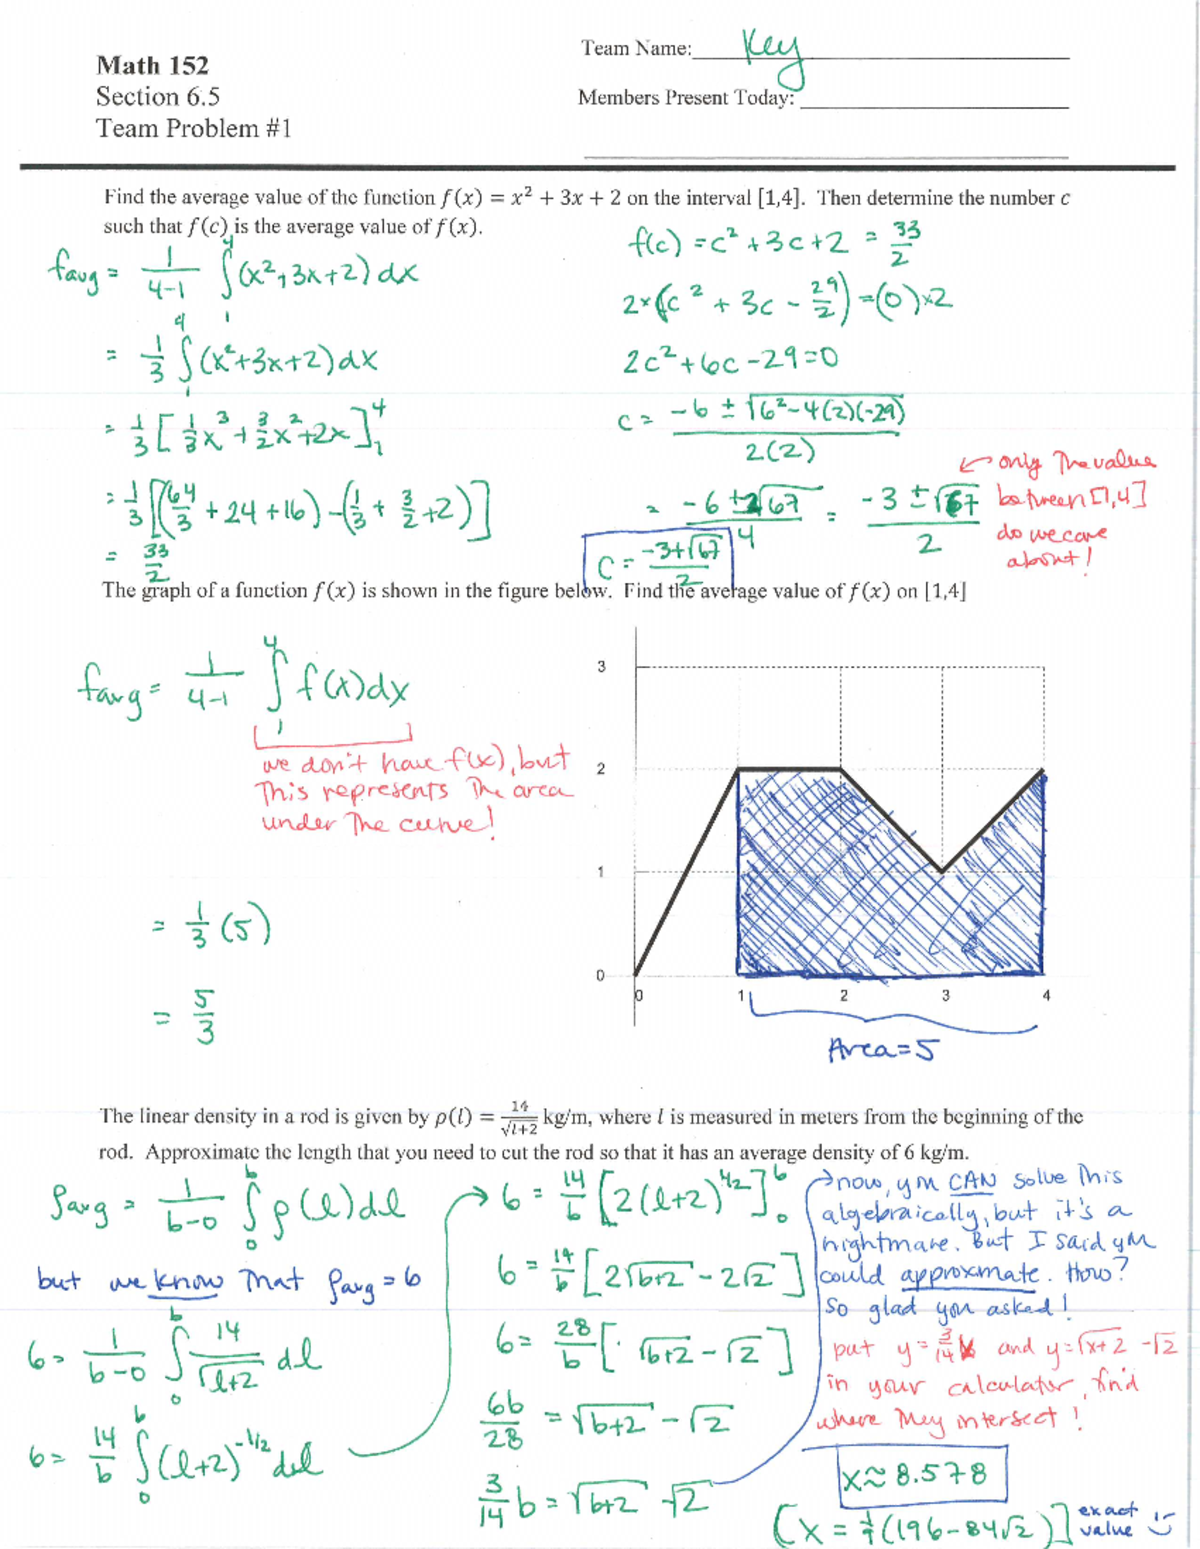 Team Name: Key
Math 152
Section 6.5
Members Present Today:
Team Problem #1
Find the average value of the function f(x) = x² + 3x + 2 on the interval [1,4]. Then determine the number c
such that f(c) is the average value of f(x).
f(c) = c² + 3c + 2 = 33/2
favg = 1/(4-1) ∫₁⁴ (x²+3x+2) dx
2×(c² + 3c - 29/2) = (0)×2
= 1/3 ∫₁⁴ (x²+3x+2) dx
2c² + 6c - 29 = 0
= 1/3 [1/3 x³ + 3/2 x² + 2x]₁⁴
c = (-6 ± √(6²-4(2)(-29)))/(2(2))
= 1/3 [(64/3 + 24 + 16) - (1/3 + 3/2 + 2)]
= (-6 ± 2√67)/4 = (-3 ± √67)/2
← only the value
between [1,4]
do we care
about!
= 33/2
c = (-3+√67)/2
The graph of a function f(x) is shown in the figure below. Find the average value of f(x) on [1,4]
favg = 1/(4-1) ∫₁⁴ f(x)dx
we don't have f(x), but
This represents the area
under the curve!
= 1/3 (5)
= 5/3
3
2
1
0
0 1 2 3 4
Area=5
The linear density in a rod is given by ρ(l) = 14/√(l+2) kg/m, where l is measured in meters from the beginning of the
rod. Approximate the length that you need to cut the rod so that it has an average density of 6 kg/m.
ρavg = 1/(b-0) ∫₀ᵇ ρ(l)dl
but we know that ρavg = 6
6 = 1/(b-0) ∫₀ᵇ 14/√(l+2) dl
6 = 14/b ∫₀ᵇ (l+2)^(-1/2) dl
→ 6 = 14/b [2(l+2)^(1/2)]₀ᵇ
6 = 14/b [2√(b+2) - 2√2]
6 = 28/b [√(b+2) - √2]
6b/28 = √(b+2) - √2
3/14 b = √(b+2) - √2
→ now, you CAN solve this
algebraically, but it's a
nightmare. But I said you
could approximate. How?
So glad you asked!
put y = 3/14 x and y = √(x+2) - √2
in your calculator, find
where they intersect!
x ≈ 8.578
[x = 1/9 (196-84√2)] exact
value :)